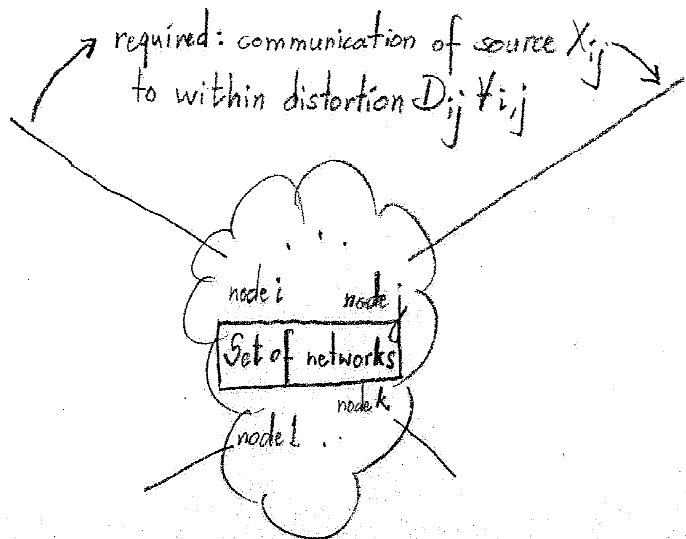 required: communication of source X_ij
to within distortion D_ij ∀i,j
. . .
node i node j
Set of networks
node k
node l . .